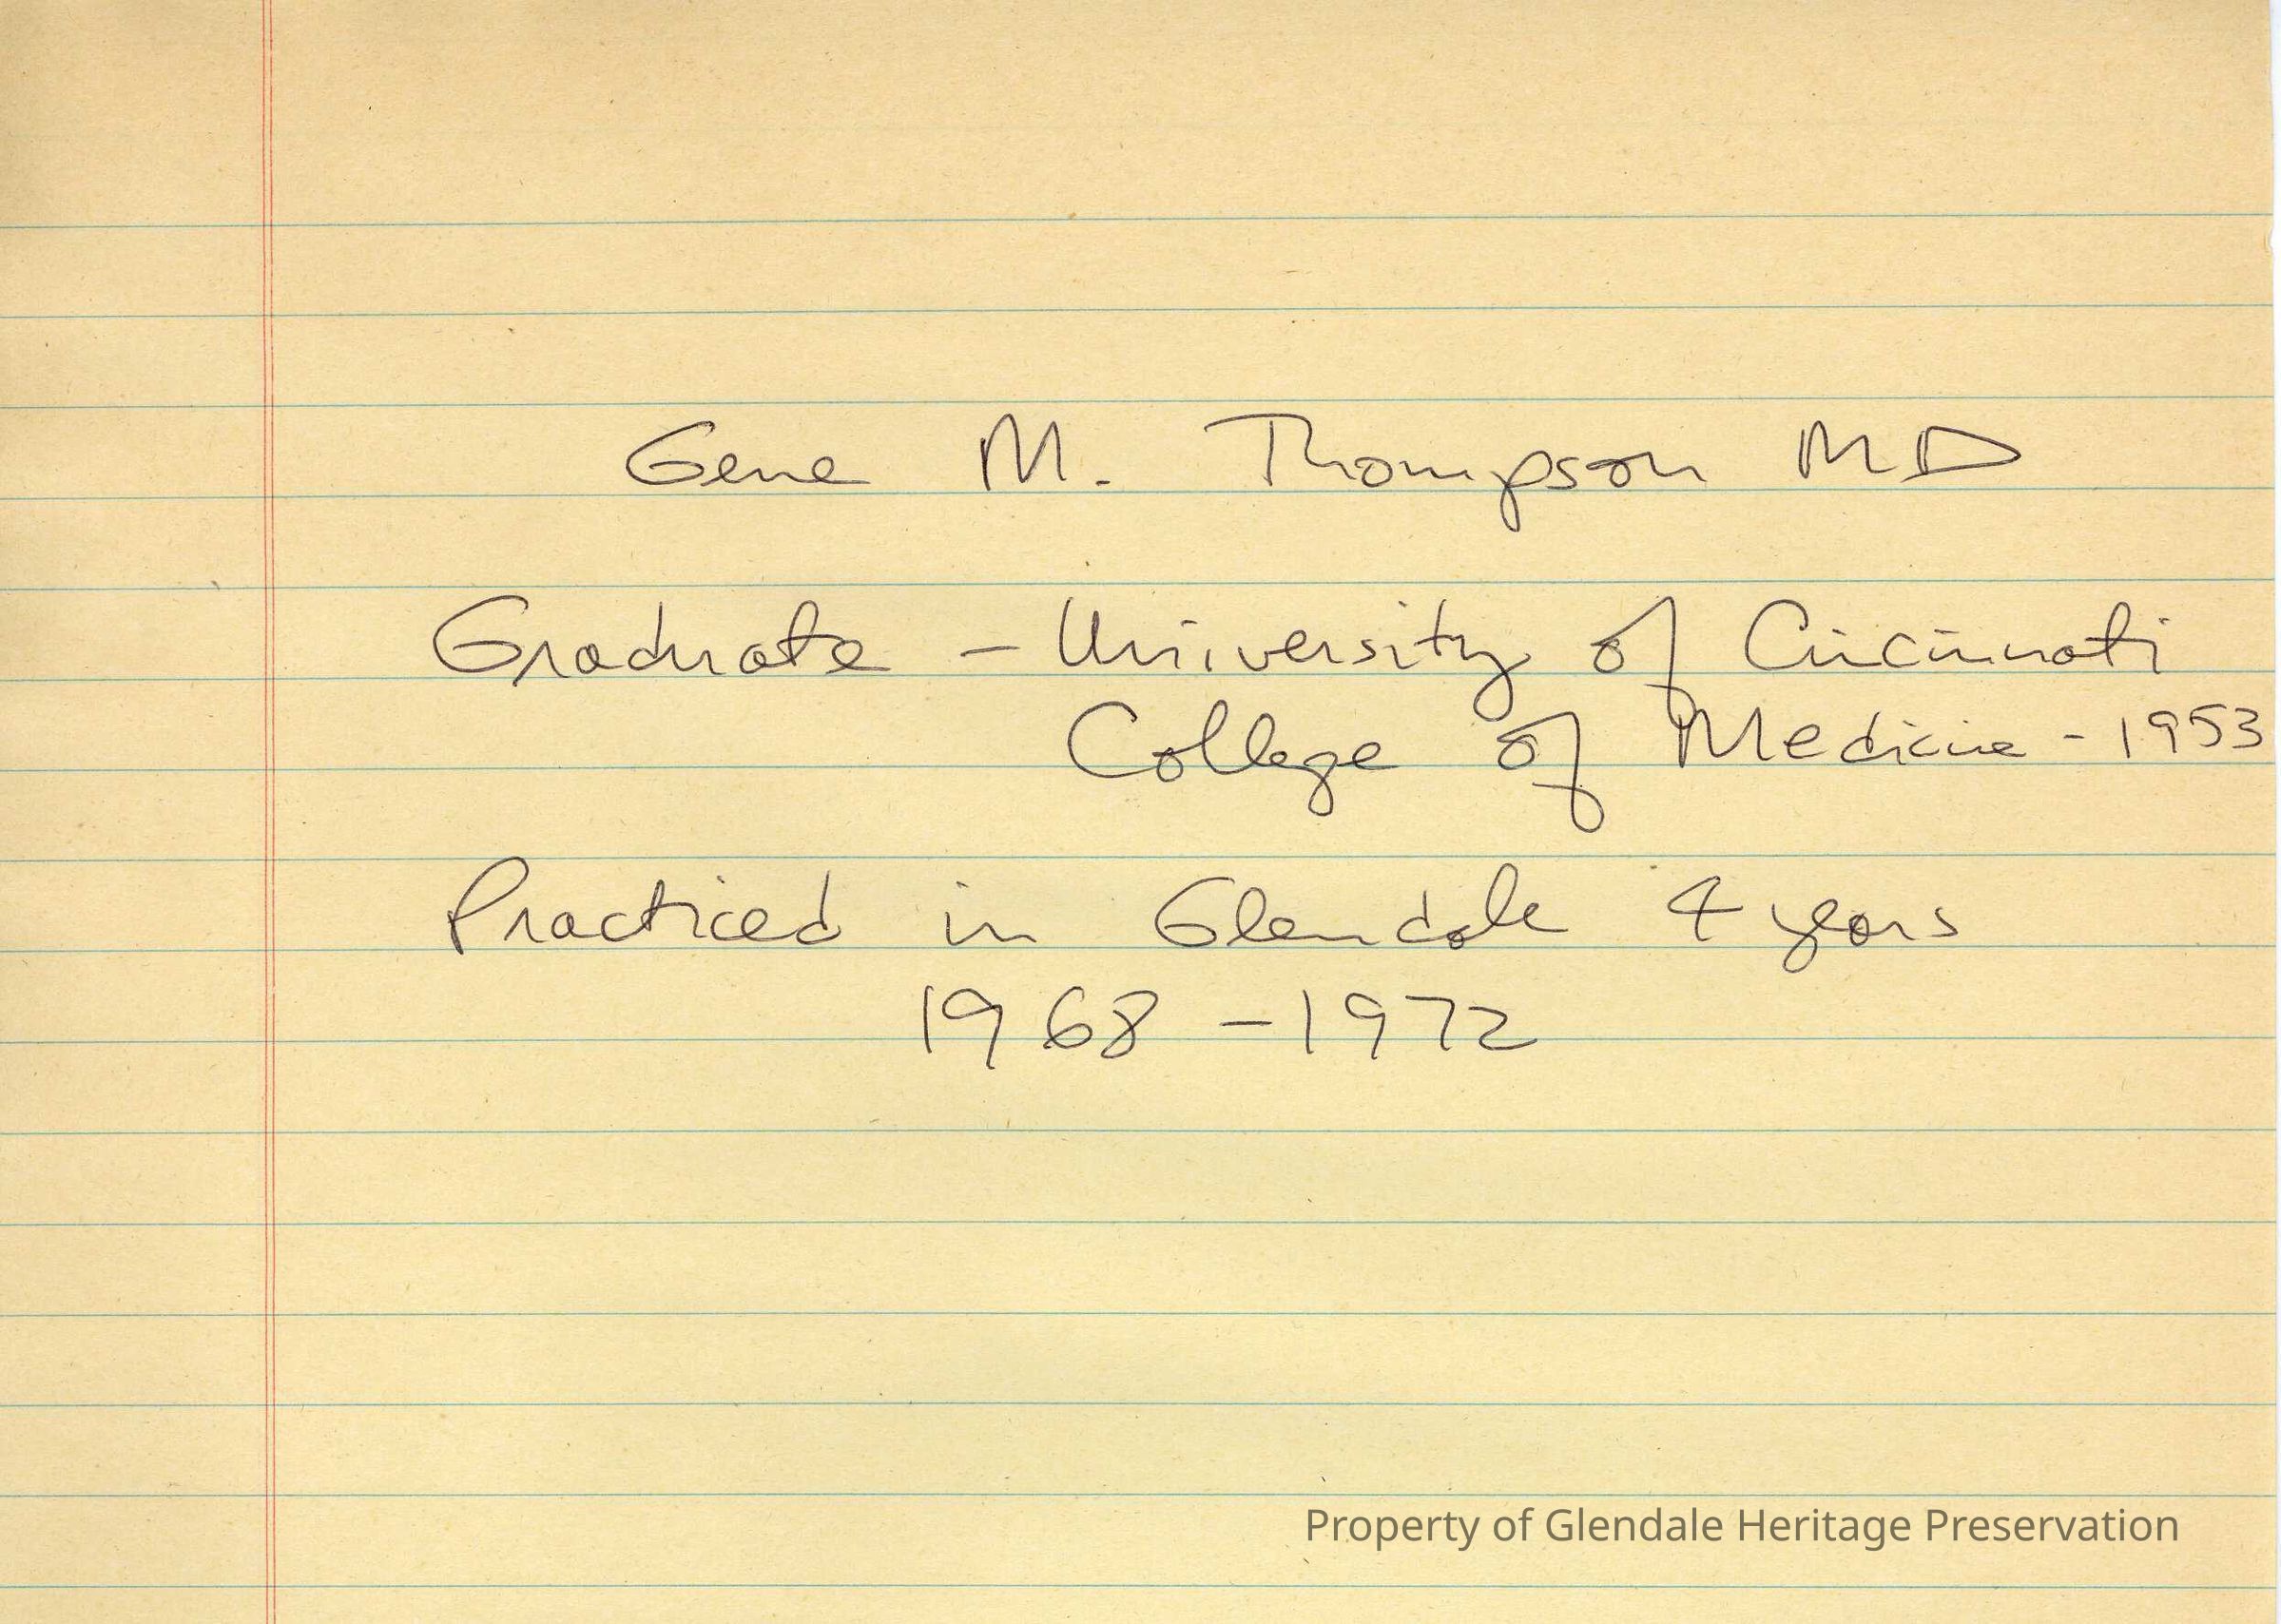 Gene M. Thompson MD
Graduate - University of Cincinnati
College of Medicine - 1953
Practiced in Glendale 4 years
1968 - 1972
Property of Glendale Heritage Preservation